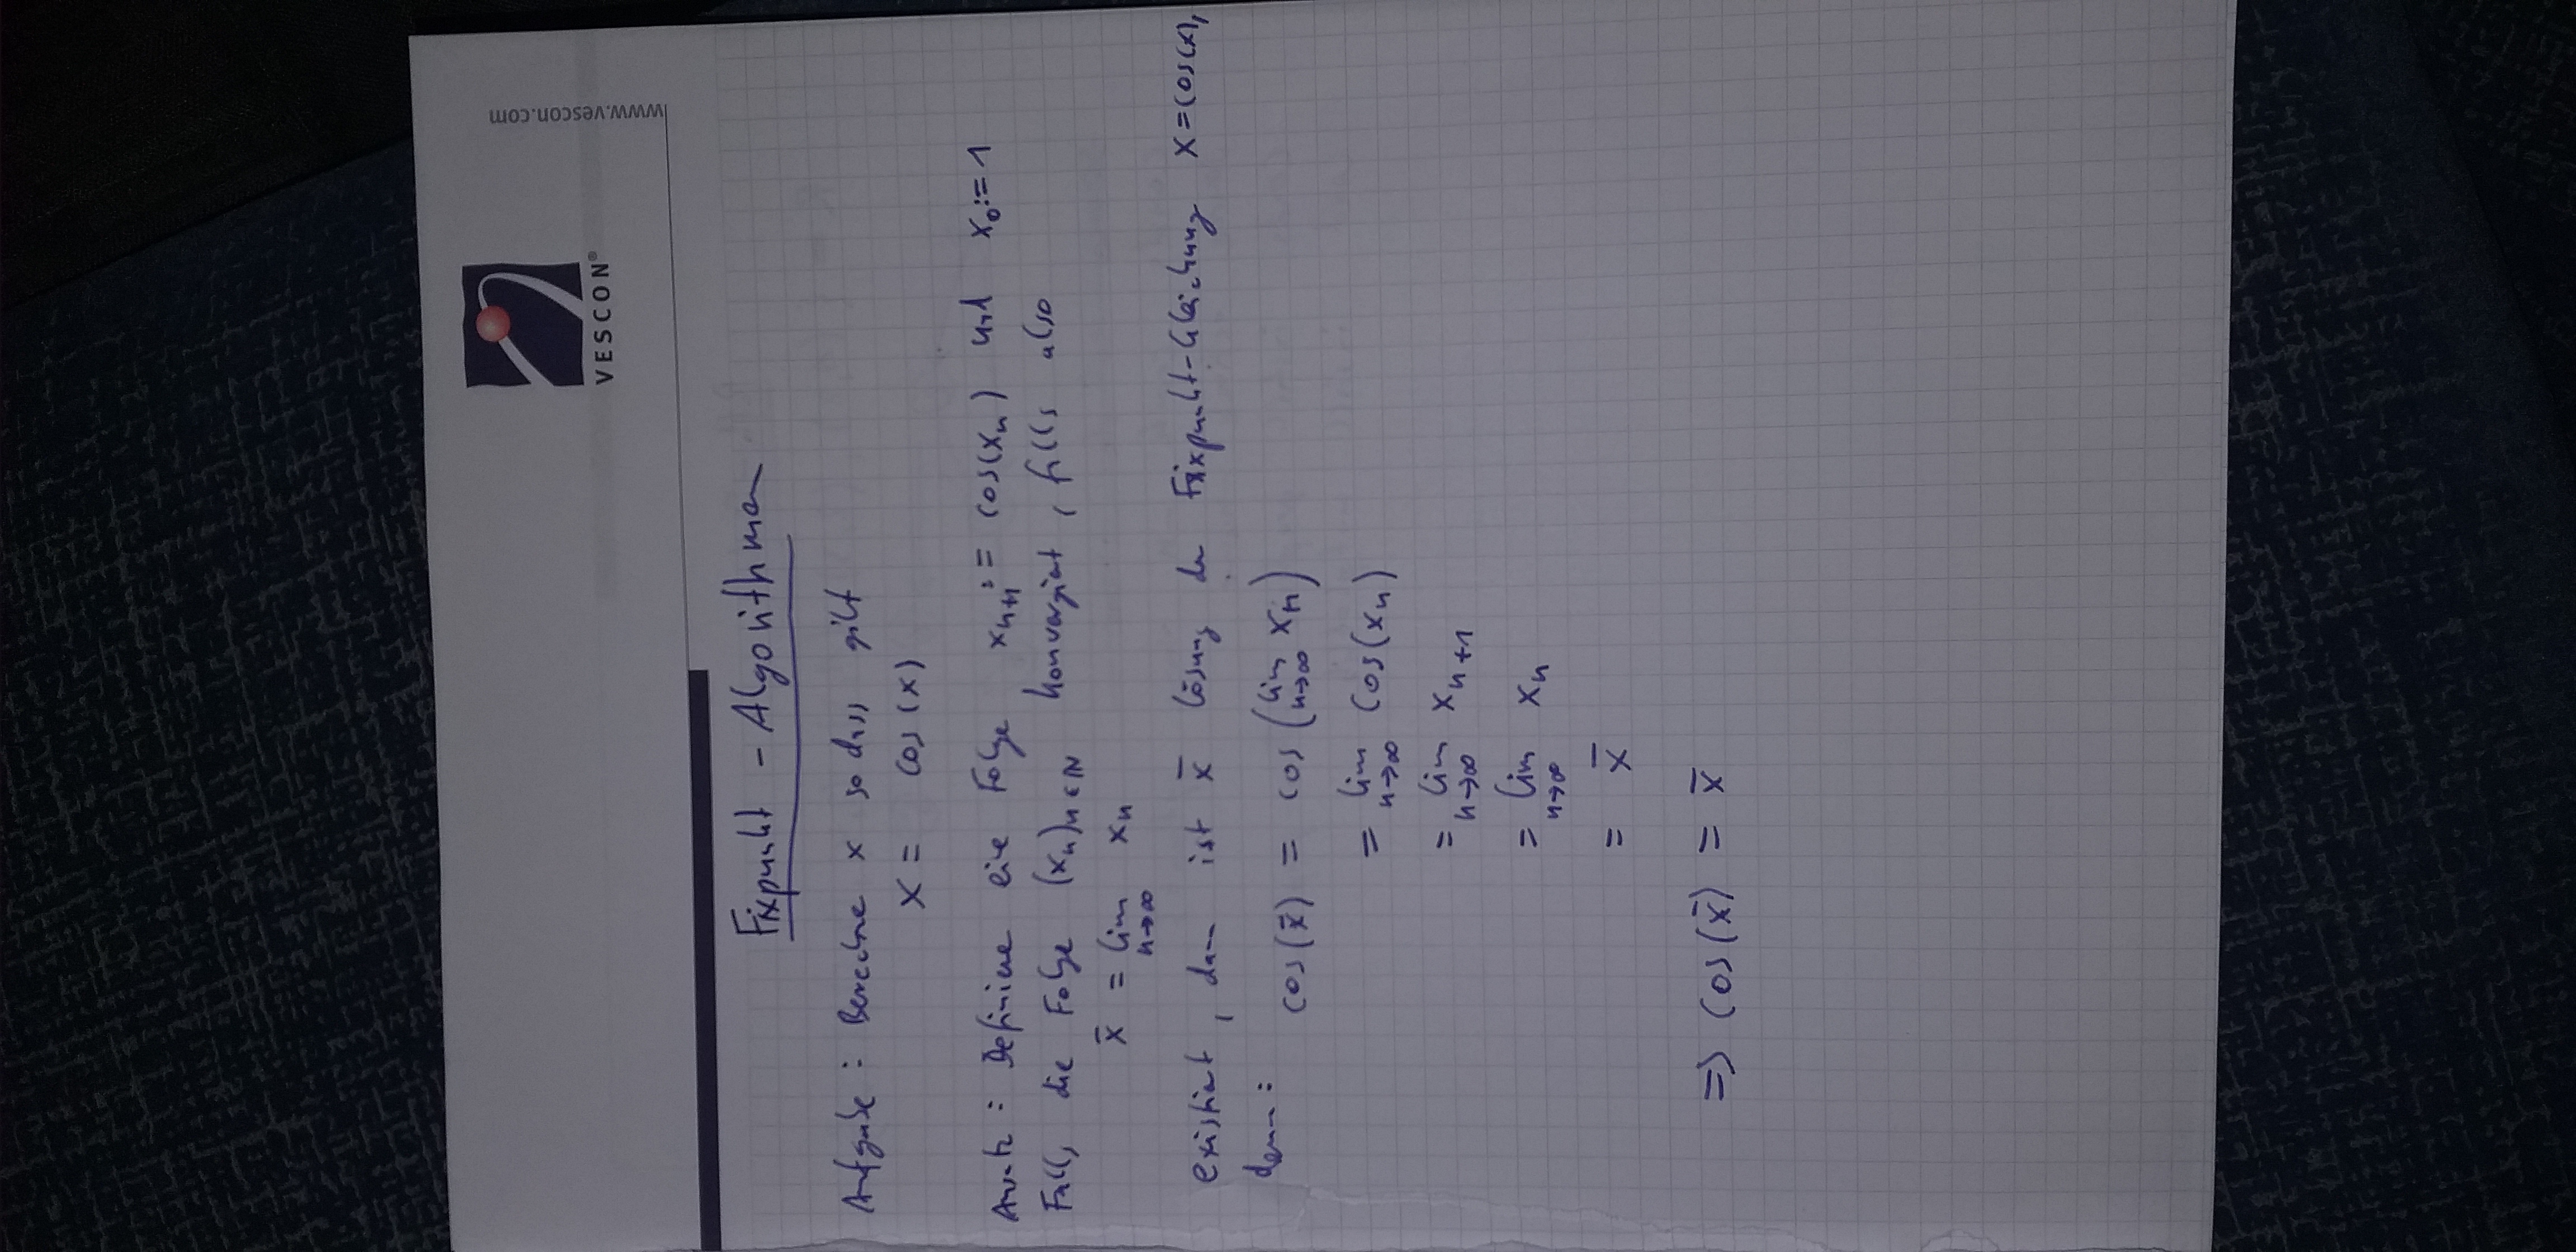 VESCON®
www.vescon.com
Fixpunkt - Algorithmen
Aufgabe : Berechne x so dass gilt
x = cos(x)
Ansatz : Definiere eine Folge xₙ₊₁ := cos(xₙ) und x₀ := 1
Falls die Folge (xₙ)ₙ∈ℕ konvergiert, falls also
x̄ = lim n→∞ xₙ
existiert, dann ist x̄ Lösung der Fixpunkt-Gleichung x = cos(x),
denn :
cos(x̄) = cos(lim n→∞ xₙ)
= lim n→∞ cos(xₙ)
= lim n→∞ xₙ₊₁
= lim n→∞ xₙ
= x̄
⇒ cos(x̄) = x̄